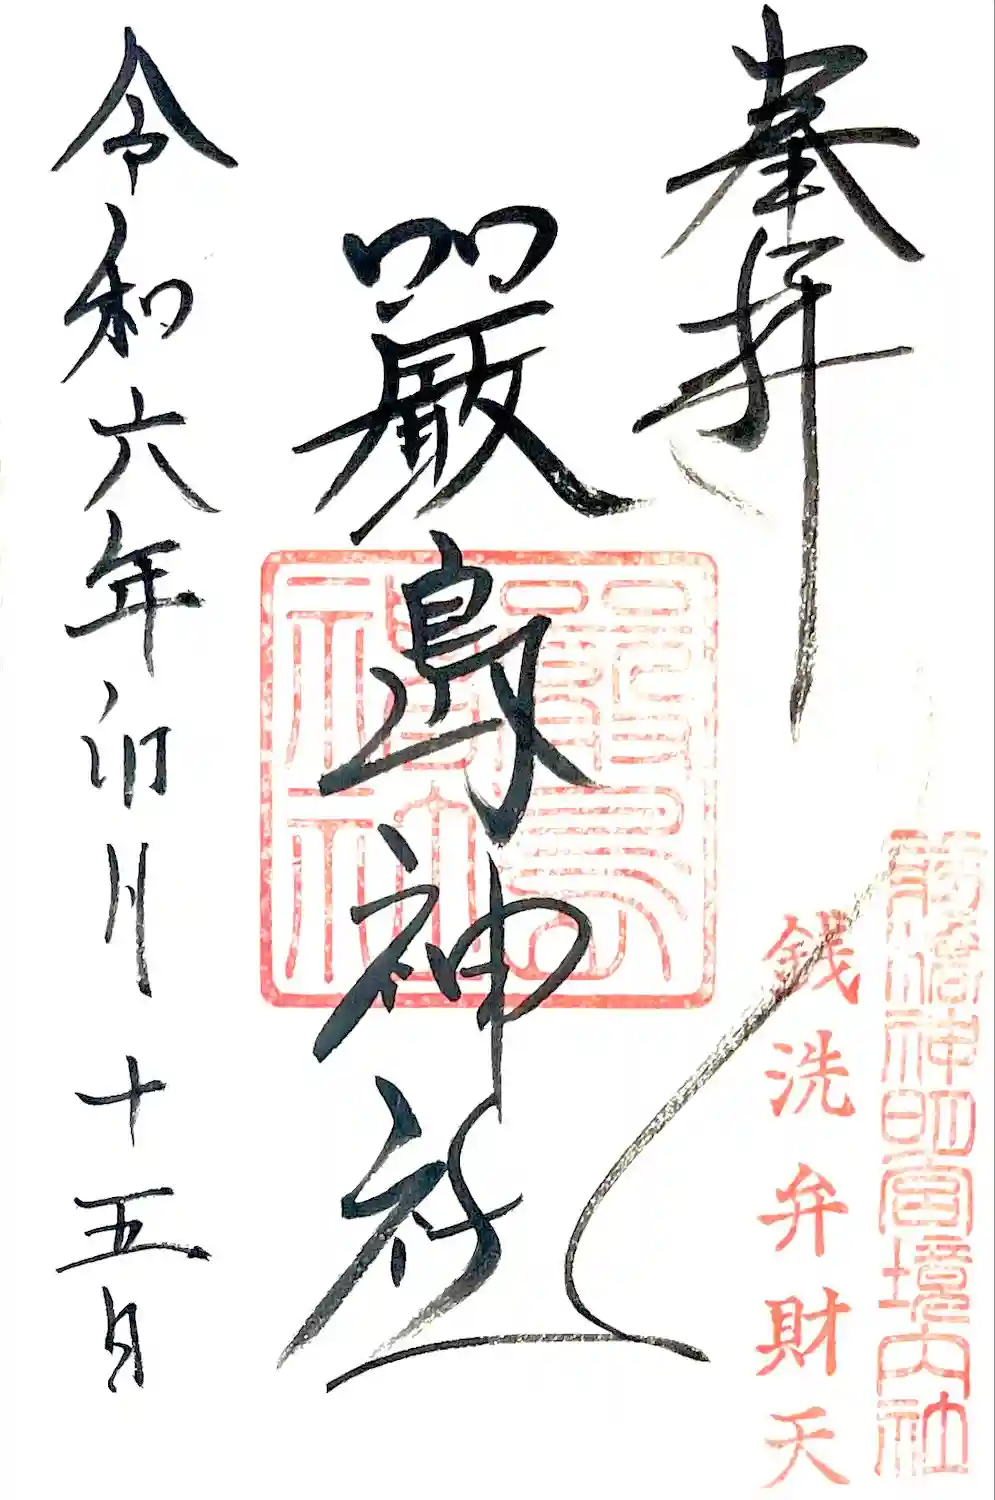 奉拝
前橋神明宮境内社
銭洗弁財天
嚴島神社
嚴島神社
令和六年卯月十五日